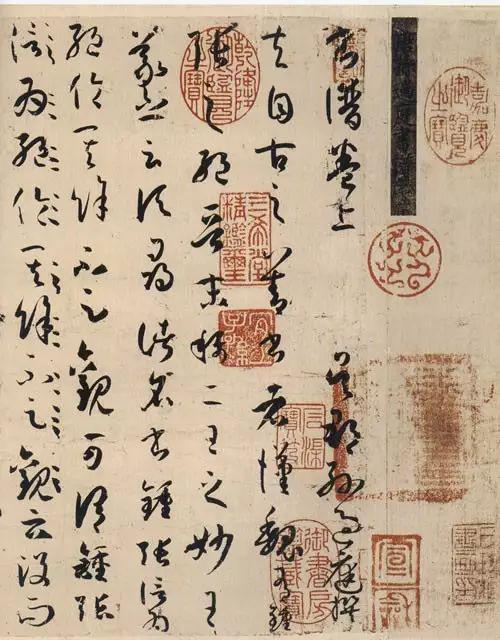 嘉慶御覽之寶
書譜卷上 吳郡孫過庭撰
夫自古之善書者漢魏有鍾
張之絕晉末稱二王之妙王
羲之云頃尋諸名書鍾張信為
絕倫其餘不足觀可謂鍾張
信為絕倫其餘不足觀云沒而
乾隆御覽之寶
三希堂精鑑璽
宜子孫
石渠寶笈
御書房鑑藏寶
宣龢